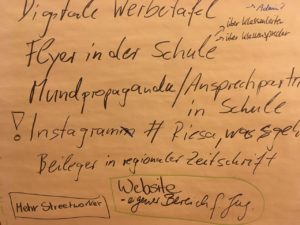 Digitale Werbetafel
→ Admin?
→ über Klassenleiter
→ über Klassensprecher
Flyer in der Schule
Mundpropaganda/Ansprechpartn
in Schule
! Instagram # Riesa, was geh
Beileger in regionaler Zeitschrift
Mehr Streetworker
Website
- eigener Bereich f. Jug.